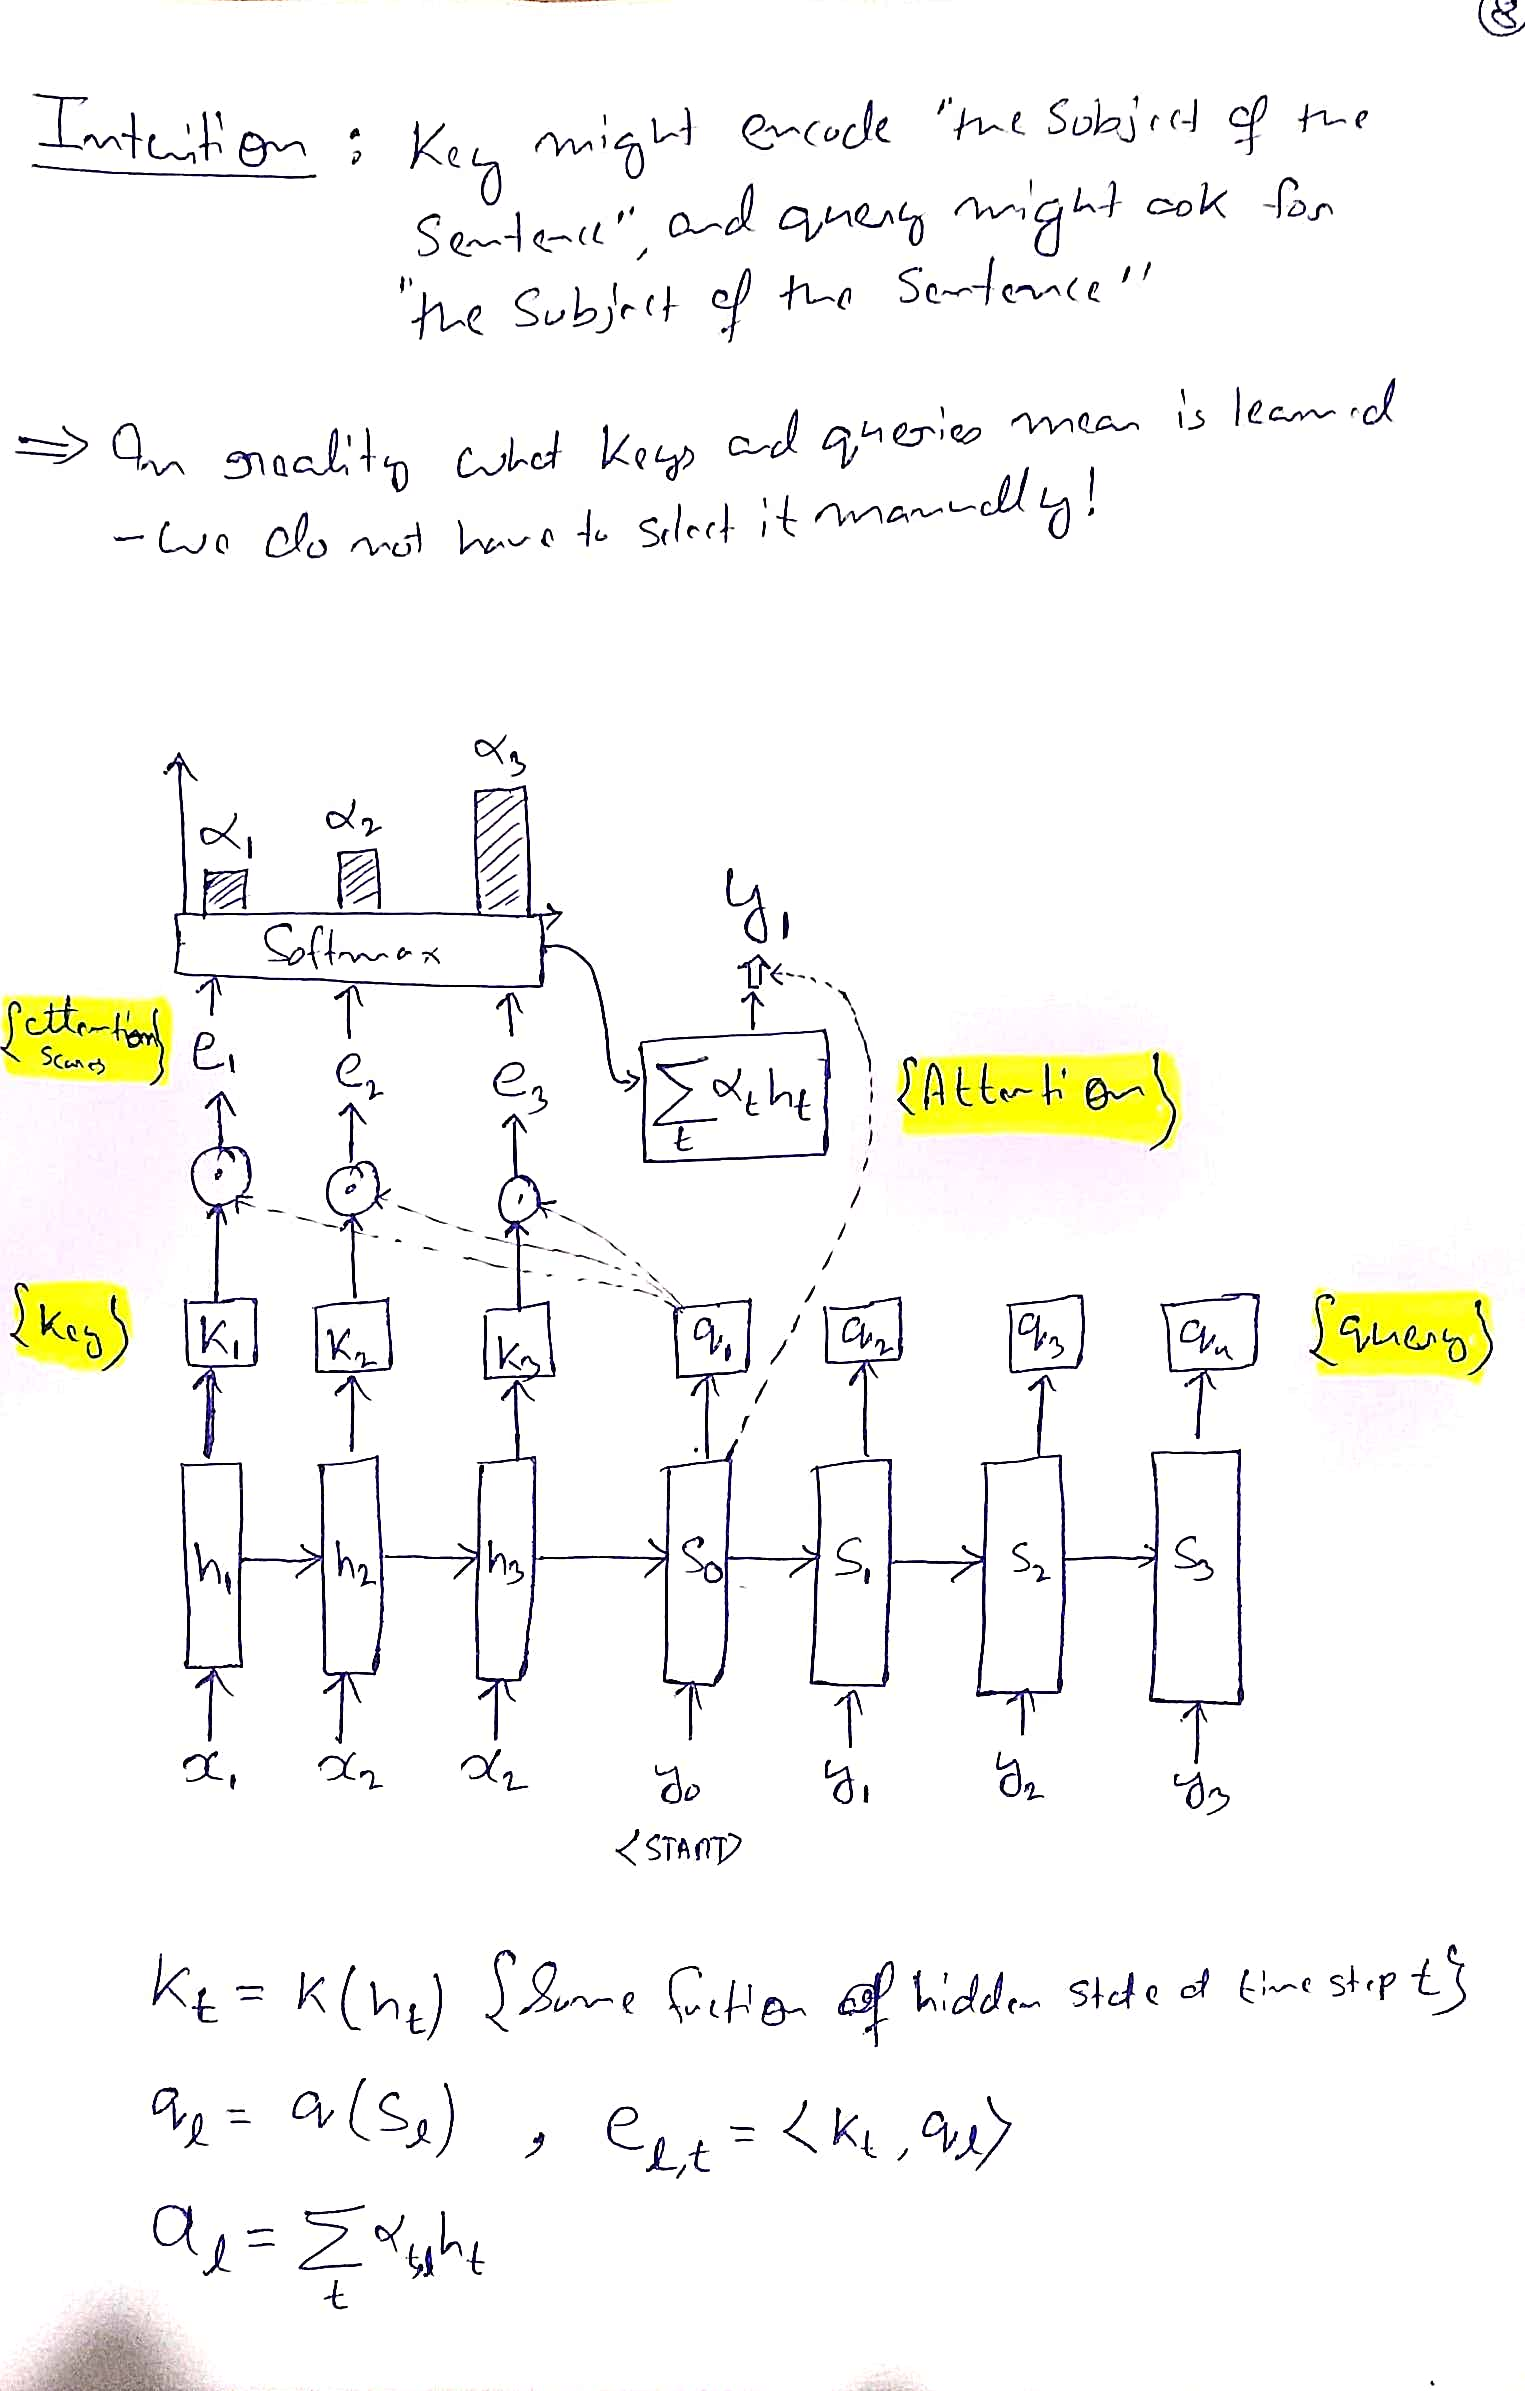 8
Intuition : Key might encode "the Subject of the
Sentence", and query might ask for
"the Subject of the Sentence"
⇒ In reality what Keys and queries mean is learned
- We do not have to select it manually!
α₃
α₁ α₂
Softmax
y₁
{attention scores} e₁ e₂ e₃
∑ₜ αₜ hₜ {Attention}
{Key} K₁ K₂ K₃ q₁ q₂ q₃ q₄ {query}
h₁ h₂ h₃ S₀ S₁ S₂ S₃
x₁ x₂ x₂ y₀ y₁ y₂ y₃
<START>
Kₜ = K(hₜ) {Some fuction of hidden state at time step t}
q_l = q(S_l) , e_l,t = <Kₜ, q_l>
a_l = ∑ₜ α_t,l hₜ